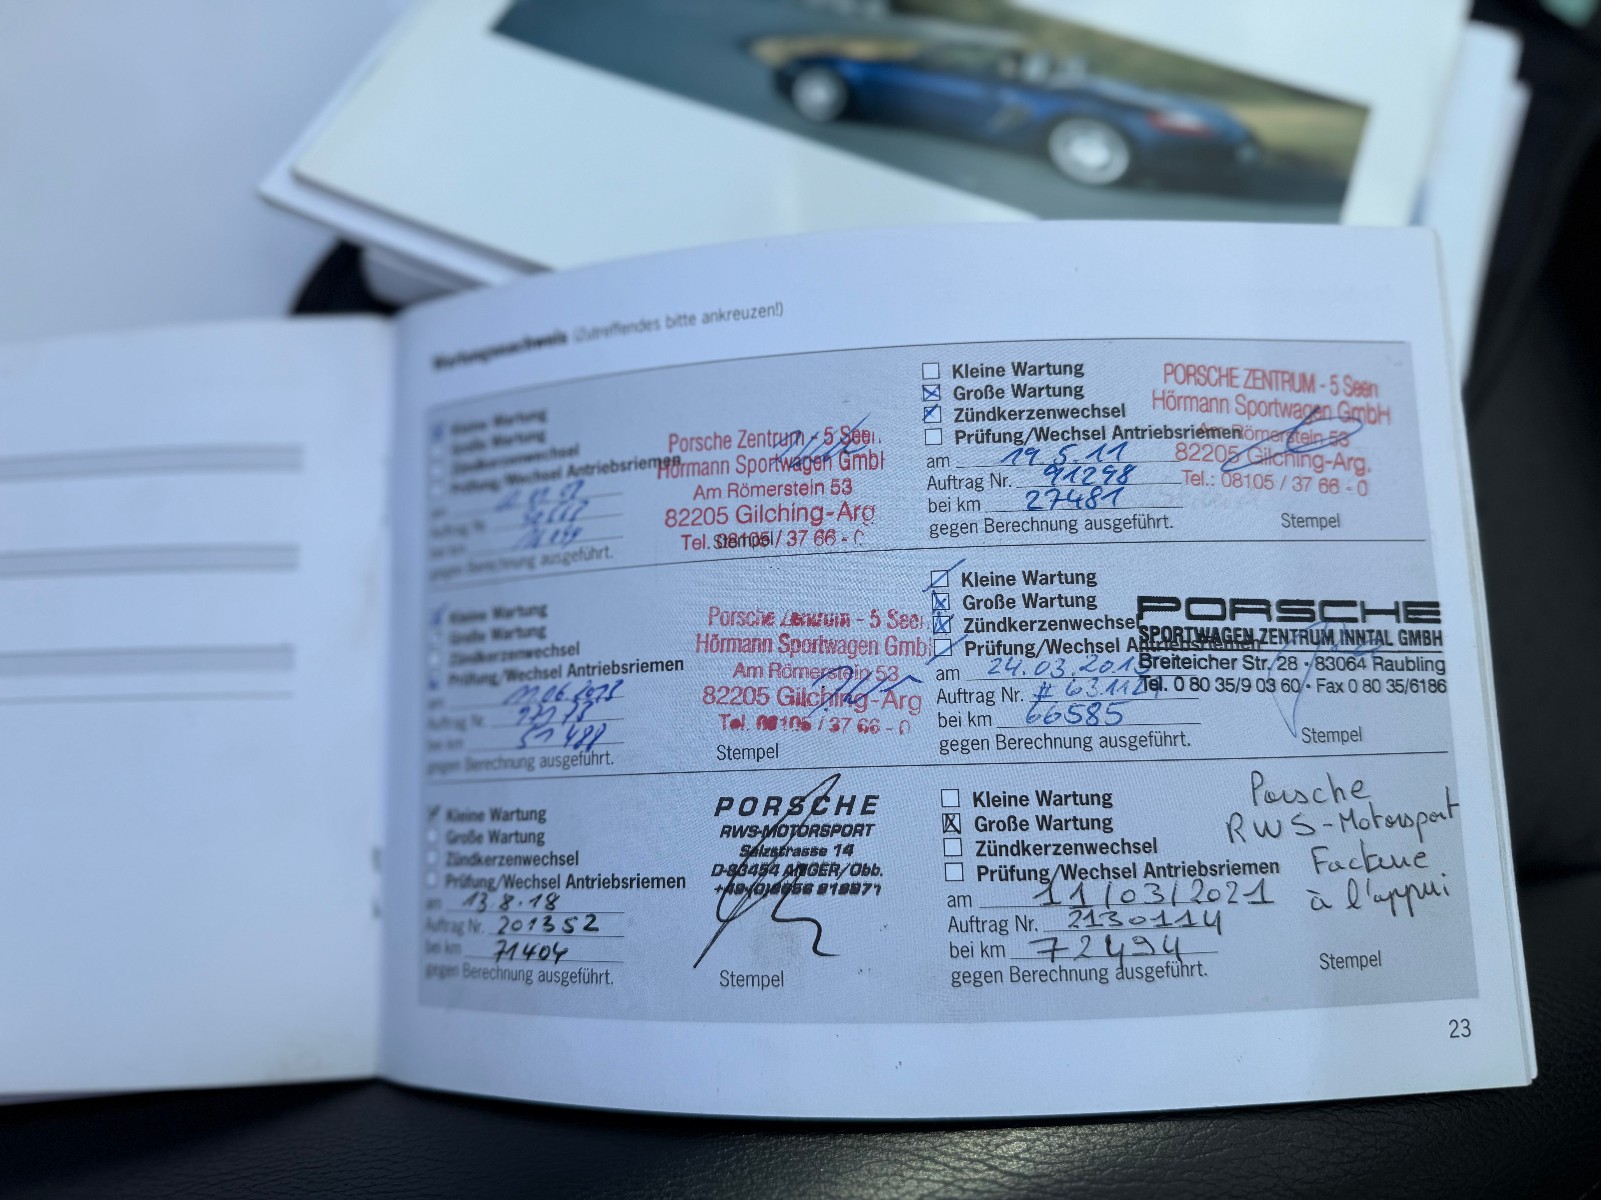 Wartungsnachweis (Zutreffendes bitte ankreuzen!)
Kleine Wartung
Große Wartung
Zündkerzenwechsel
Prüfung/Wechsel Antriebsriemen
am
Auftrag Nr.
bei km
gegen Berechnung ausgeführt.
Porsche Zentrum - 5 Seen
Hörmann Sportwagen GmbH
Am Römerstein 53
82205 Gilching-Arg
Tel. 08105 / 37 66 - 0
Stempel
Kleine Wartung
Große Wartung
Zündkerzenwechsel
Prüfung/Wechsel Antriebsriemen
am 19.5.11
Auftrag Nr. 91298
bei km 27481
gegen Berechnung ausgeführt.
PORSCHE ZENTRUM - 5 Seen
Hörmann Sportwagen GmbH
Am Römerstein 53
82205 Gilching-Arg.
Tel.: 08105 / 37 66 - 0
Stempel
Kleine Wartung
Große Wartung
Zündkerzenwechsel
Prüfung/Wechsel Antriebsriemen
am
Auftrag Nr.
bei km 51488
gegen Berechnung ausgeführt.
Porsche Zentrum - 5 Seen
Hörmann Sportwagen GmbH
Am Römerstein 53
82205 Gilching-Arg
Tel. 08105 / 37 66 - 0
Stempel
Kleine Wartung
Große Wartung
Zündkerzenwechsel
Prüfung/Wechsel Antriebsriemen
am 24.03.201
Auftrag Nr.
bei km 66585
gegen Berechnung ausgeführt.
PORSCHE
SPORTWAGEN ZENTRUM INNTAL GMBH
Breiteicher Str. 28 · 83064 Raubling
Tel. 0 80 35/9 03 60 · Fax 0 80 35/6186
Stempel
Kleine Wartung
Große Wartung
Zündkerzenwechsel
Prüfung/Wechsel Antriebsriemen
am 13.8.18
Auftrag Nr. 201352
bei km 71404
gegen Berechnung ausgeführt.
PORSCHE
RWS-MOTORSPORT
Salzstrasse 14
D-83454 ANGER/Obb.
Stempel
Kleine Wartung
Große Wartung
Zündkerzenwechsel
Prüfung/Wechsel Antriebsriemen
am 11/03/2021
Auftrag Nr. 2130114
bei km 72494
gegen Berechnung ausgeführt.
Porsche
RWS-Motorsport
Facture
à l'appui
Stempel
23